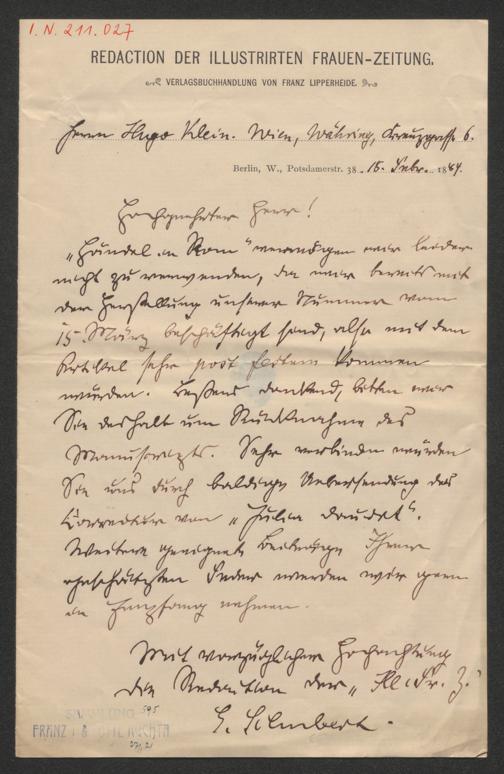 I. N. 211.027
REDACTION DER ILLUSTRIRTEN FRAUEN-ZEITUNG.
VERLAGSBUCHHANDLUNG VON FRANZ LIPPERHEIDE.
Herrn Hugo Klein. Wien, Währing, Kreuzgasse 6.
Berlin, W., Potsdamerstr. 38. 15. Febr. 1884.
Hochgeehrter Herr!
„Händel in Rom“ vermögen wir leider
nicht zu verwenden, da wir bereits mit
der Herstellung unserer Nummer vom
15. März beschäftigt sind, also mit dem
Artikel sehr post festum kommen
würden. Bestens dankend, bitten wir
Sie deshalb um Rücknahme des
Manuscripts. Sehr verbinden würden
Sie uns durch baldige Uebersendung der
Correctur von „Julia Daudet“.
Weitere geeignete Beiträge Ihrer
geschätzten Feder werden wir gern
in Empfang nehmen.
Mit vorzüglicher Hochachtung
die Redaction der „Ill. Fr. Z.“
SAMMLUNG